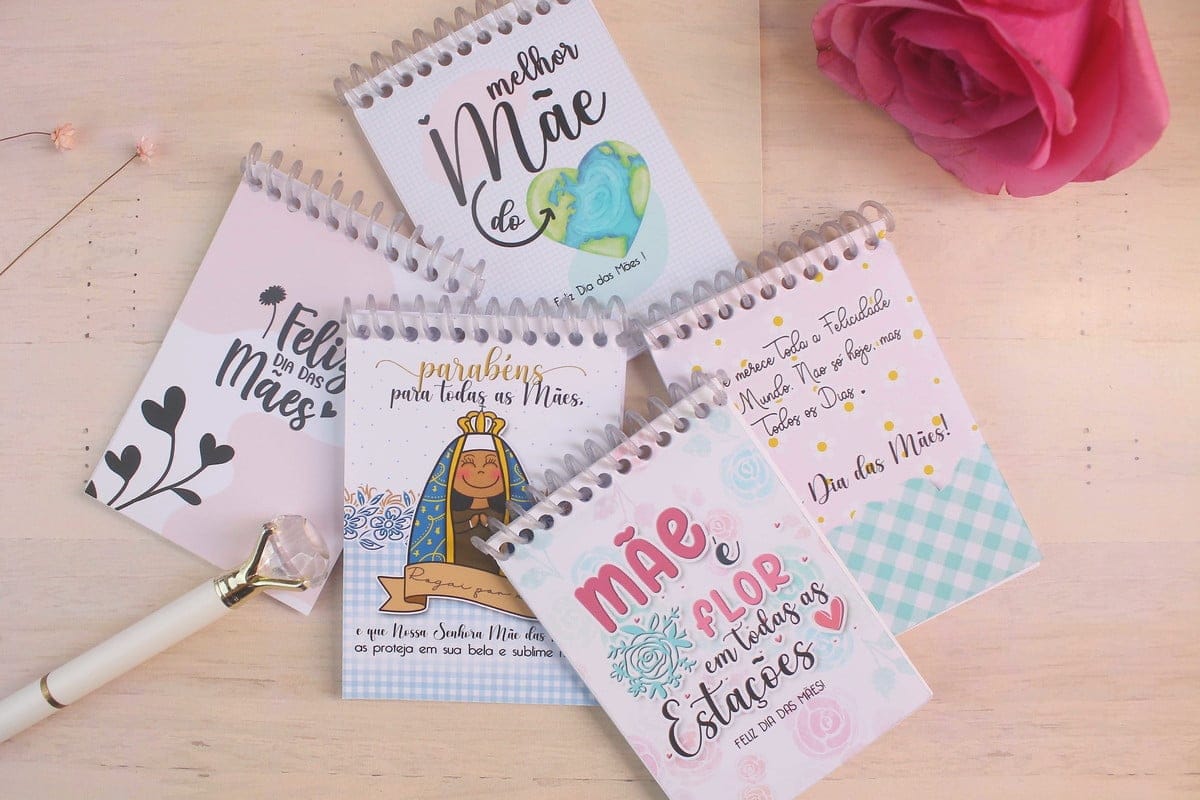 melhor
Mãe
do
Feliz Dia das Mães!
Feliz
DIA DAS
Mães
parabéns
para todas as Mães,
Rogai por
e que Nossa Senhora Mãe das
as proteja em sua bela e sublime
merece toda a Felicidade
Mundo. Não só hoje, mas
Todos os Dias
Dia das Mães!
MÃE
é
FLOR
em todas as
Estações
FELIZ DIA DAS MÃES!